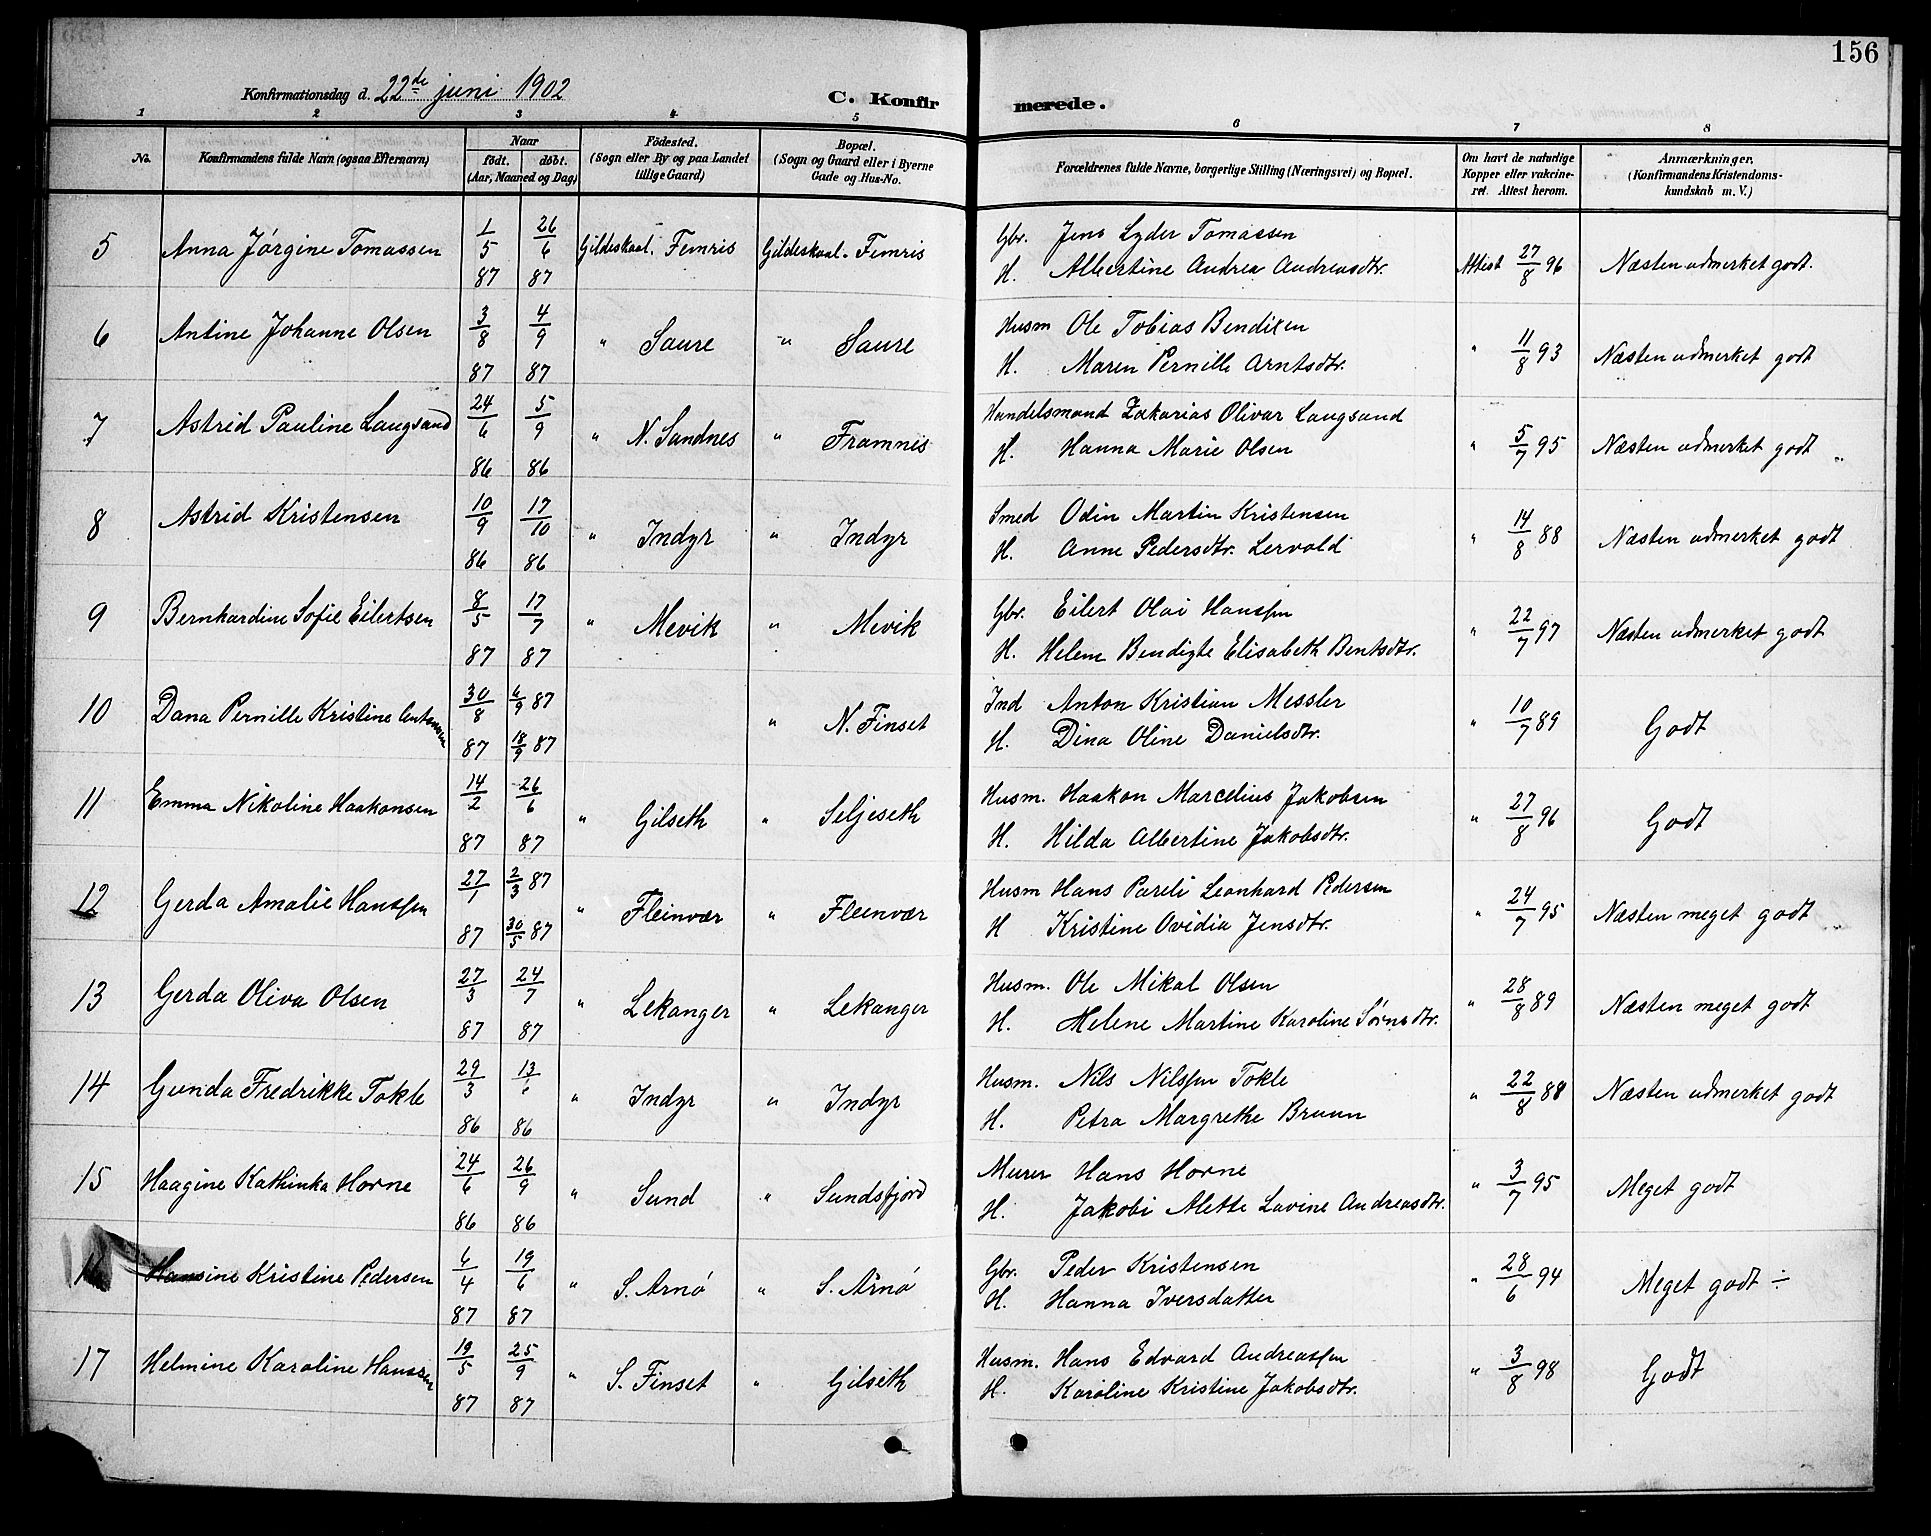 156
Konfirmationsdag d. 22de juni 1902
C. Konfir merede.
1 2 3 4 5 6 7 8
No. Konfirmandens fulde Navn (ogsaa Efternavn) Naar født. døbt. (Aar, Maaned og Dag) Födested. (Sogn eller By og paa Landet tillige Gaard) Bopæl. (Sogn og Gaard eller i Byerne Gade og Hus-No. Forældrenes fulde Navne, borgerlige Stilling (Næringsvei) og Bopæl. Om havt de naturlige Kopper eller vakcineret. Attest herom. Anmærkninger. (Konfirmandens Kristendomskundskab m. V.)
5 Anna Jørgine Tomassen 1/5 87 26/6 87 Gildeskaal. Femris Gildeskaal. Femris Gbr. Jens Lyder Tomassen
H. Albertine Andrea Andreasdtr. Attest 27/8 96 Næsten udmerket godt.
6 Antine Johanne Olsen 3/8 87 4/9 87 " Saure " Saure Husm Ole Tobias Bendixen
H. Maren Pernille Arntsdtr. " 11/8 93 Næsten udmerket godt
7 Astrid Pauline Langsand 24/6 86 5/9 86 " N. Sandnes " Framnis Handelsmand Zakarias Olivar Langsand
H. Hanna Marie Olsen " 5/7 95 Næsten udmerket godt
8 Astrid Kristensen 10/9 86 17/10 86 " Indyr " Indyr Smed Odin Martin Kristensen
H. Anne Pedersdtr. Lervold " 14/8 88 Næsten udmerket godt
9 Bernhardine Sofie Eilertsen 8/5 87 17/7 87 " Mevik " Mevik Gbr. Eilert Olai Hanssen
H. Helene Bendigte Elisabeth Bentsdtr. " 22/7 97 Næsten udmerket godt
10 Dana Pernille Kristine Antonsen 30/8 87 4/9 87 18/9 87 " N. Finset Ind Anton Kristian Messler
H. Dina Oline Danielsdtr. " 10/7 89 Godt
11 Emma Nikoline Haakonsen 14/2 87 26/6 87 " Gilseth " Seljeseth Husm. Haakon Marcelius Jakobsen
H. Hilda Albertine Jakobsdtr. " 27/8 96 Godt
12 Gerda Amalie Hanssen 27/1 87 2/3 87 30/5 87 " Fleinvær " Fleinvær Husm Hans Pareli Leonhard Pedersen
H Kristine Ovidia Jensdtr. " 24/7 95 Næsten meget godt
13 Gerda Oliva Olsen 27/3 87 24/7 87 " Lekanger " Lekanger Husm. Ole Mikal Olsen
H. Helene Martine Karoline Sørnsdtr. " 28/8 89 Næsten meget godt
14 Gunda Fredrikke Tokle 29/3 86 13/ 86 " Indyr " Indyr Husm. Nils Nilssen Tokle
H. Petra Margrethe Bruun " 22/8 88 Næsten udmerket godt
15 Haagine Kathinka Horne 24/6 86 26/9 86 " Sund " Sundsfjord Murer Hans Horne
H. Jakobi Alette Lavine Andreasdtr. " 3/7 95 Meget godt
16 Hansine Kristine Pedersen 4/4 87 19/6 87 " S. Arnø " S. Arnø Gbr. Peder Kristensen
H. Hanna Iversdatter " 28/6 94 Meget godt ÷
17 Helmine Karoline Hanssen 19/5 87 25/9 87 " S. Finset " Gilseth Husm. Hans Edvard Andreassen
H. Karoline Kristine Jakobsdtr. " 3/8 98 Godt